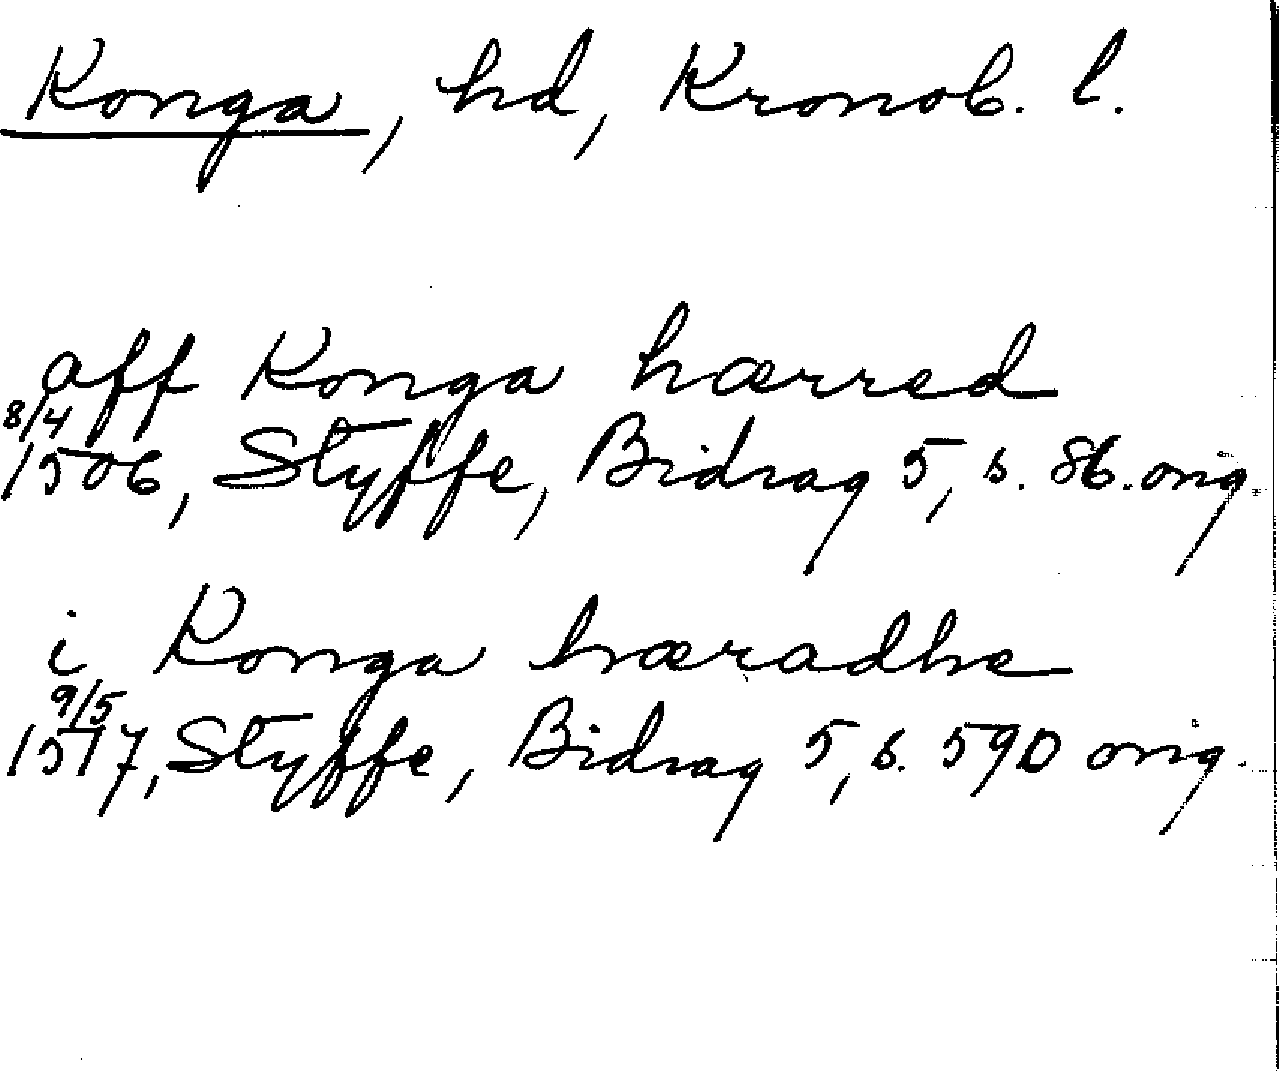 Konga, hd, Kronob. l.
aff Konga hærred
8/4
1506, Styffe, Bidrag 5, s. 86. orig.
i Konga hæradhe
9/5
1517, Styffe, Bidrag 5, s. 590 orig.